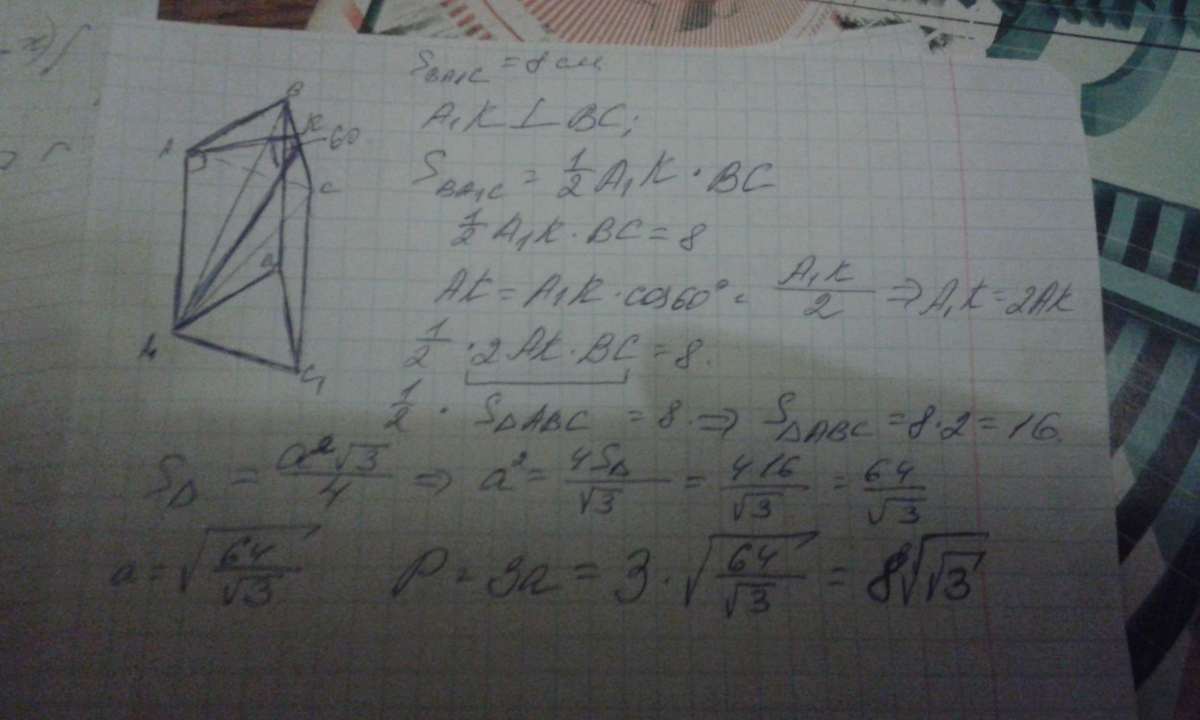 S_{BA₁C} = 8 см
A₁K ⊥ BC;
S_{BA₁C} = \frac{1}{2} A₁K · BC
\frac{1}{2} A₁K · BC = 8
AK = A₁K · cos60° = \frac{A₁K}{2} ⇒ A₁K = 2AK
\frac{1}{2} · 2AK · BC = 8.
\frac{1}{2} · S_{ΔABC} = 8. ⇒ S_{ΔABC} = 8·2 = 16.
S_Δ = \frac{a²√3}{4} ⇒ a² = \frac{4S_Δ}{√3} = \frac{4 16}{√3} = \frac{64}{√3}
a = \sqrt{\frac{64}{√3}} P = 3a = 3 · \sqrt{\frac{64}{√3}} = 8\sqrt{√3}
B
A
K
60
C
B
A₁
C₁